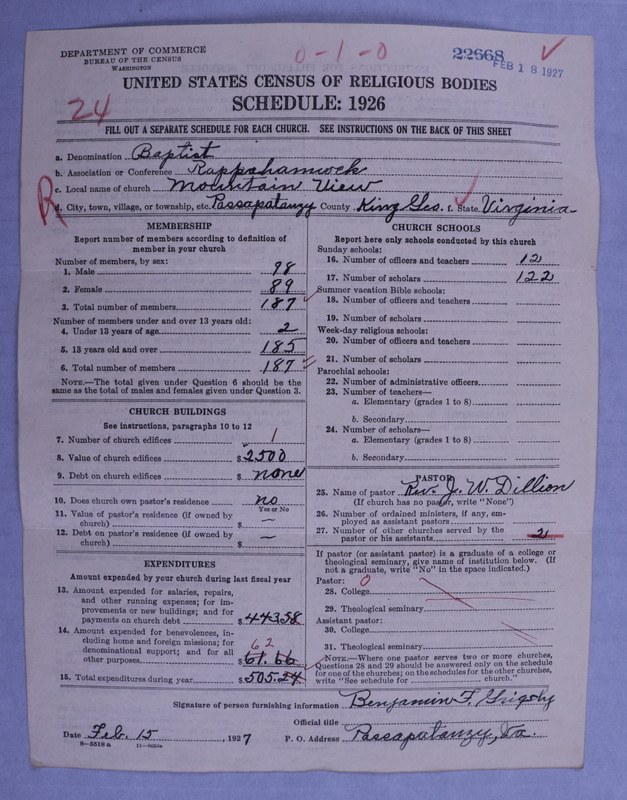 DEPARTMENT OF COMMERCE
BUREAU OF THE CENSUS
WASHINGTON
0-1-0
22668
FEB 18 1927
UNITED STATES CENSUS OF RELIGIOUS BODIES
24
SCHEDULE: 1926
FILL OUT A SEPARATE SCHEDULE FOR EACH CHURCH. SEE INSTRUCTIONS ON THE BACK OF THIS SHEET
a. Denomination Baptist
b. Association or Conference Rappahannock
R
c. Local name of church Mountain View
d. City, town, village, or township, etc. Passapatanzy County King Geo. f. State Virginia
MEMBERSHIP
Report number of members according to definition of
member in your church
Number of members, by sex:
1. Male 98
2. Female 89
3. Total number of members 187
Number of members under and over 13 years old:
4. Under 13 years of age 2
5. 13 years old and over 185
6. Total number of members 187
NOTE.—The total given under Question 6 should be the
same as the total of males and females given under Question 3.
CHURCH BUILDINGS
See instructions, paragraphs 10 to 12
7. Number of church edifices 1
8. Value of church edifices $2500
9. Debt on church edifices $ none
10. Does church own pastor's residence no
Yes or No
11. Value of pastor's residence (if owned by
church) $ —
12. Debt on pastor's residence (if owned by
church) $ —
EXPENDITURES
Amount expended by your church during last fiscal year
13. Amount expended for salaries, repairs,
and other running expenses; for im-
provements or new buildings; and for
payments on church debt $443.58
14. Amount expended for benevolences, in-
cluding home and foreign missions; for
denominational support; and for all
62
other purposes $61.66
15. Total expenditures during year $505.24
CHURCH SCHOOLS
Report here only schools conducted by this church
Sunday schools:
16. Number of officers and teachers 12
17. Number of scholars 122
Summer vacation Bible schools:
18. Number of officers and teachers
19. Number of scholars
Week-day religious schools:
20. Number of officers and teachers
21. Number of scholars
Parochial schools:
22. Number of administrative officers
23. Number of teachers—
a. Elementary (grades 1 to 8)
b. Secondary
24. Number of scholars—
a. Elementary (grades 1 to 8)
b. Secondary
PASTOR
25. Name of pastor Rev. J. W. Dillion
(If church has no pastor, write "None")
26. Number of ordained ministers, if any, em-
ployed as assistant pastors
27. Number of other churches served by the
pastor or his assistants 2
If pastor (or assistant pastor) is a graduate of a college or
theological seminary, give name of institution below. (If
not a graduate, write "No" in the space indicated.)
Pastor: 0
28. College
29. Theological seminary
Assistant pastor:
30. College
31. Theological seminary
NOTE.—Where one pastor serves two or more churches,
Questions 28 and 29 should be answered only on the schedule
for one of the churches; on the schedules for the other churches,
write "See schedule for church."
Signature of person furnishing information Benjamin F.
Official title
Date Feb. 15, 1927 P. O. Address Passapatanzy, Va.
8—5518 a